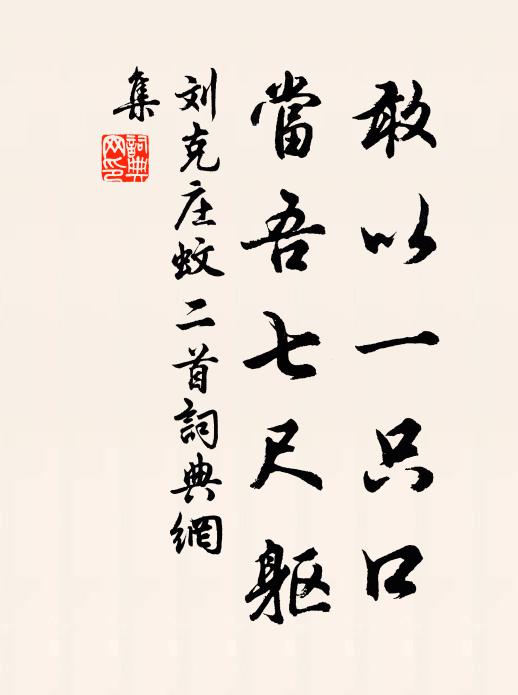 敢以一只口
當吾七尺躯
刘克庄蚊二首詞典網
集
詞典網印